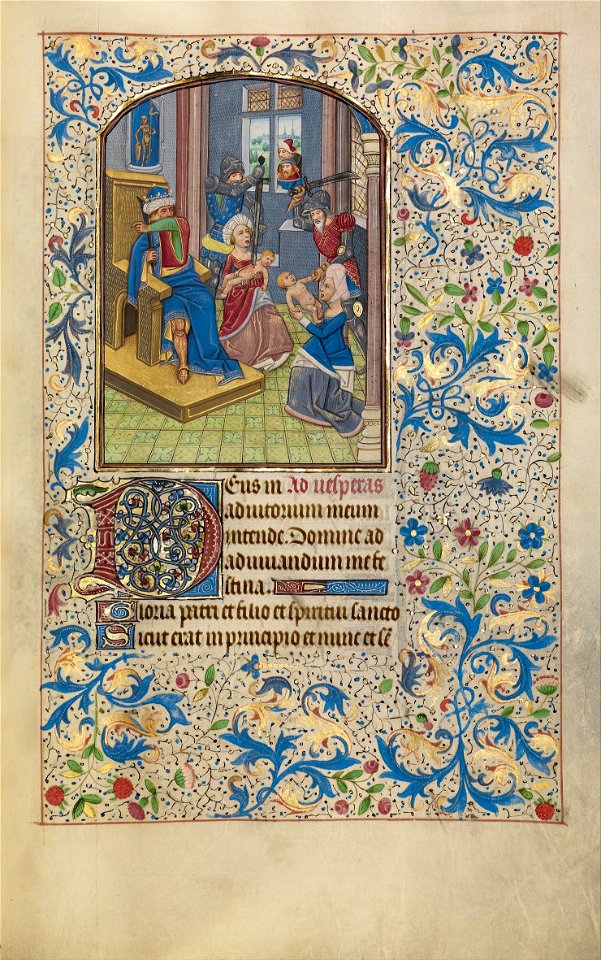 Deus in Ad vesperas
adiutorium meum
intende. Domine ad
adiuuandum me fe
stina.
Gloria patri et filio et spiritui sancto
Sicut erat in principio et nunc et sē